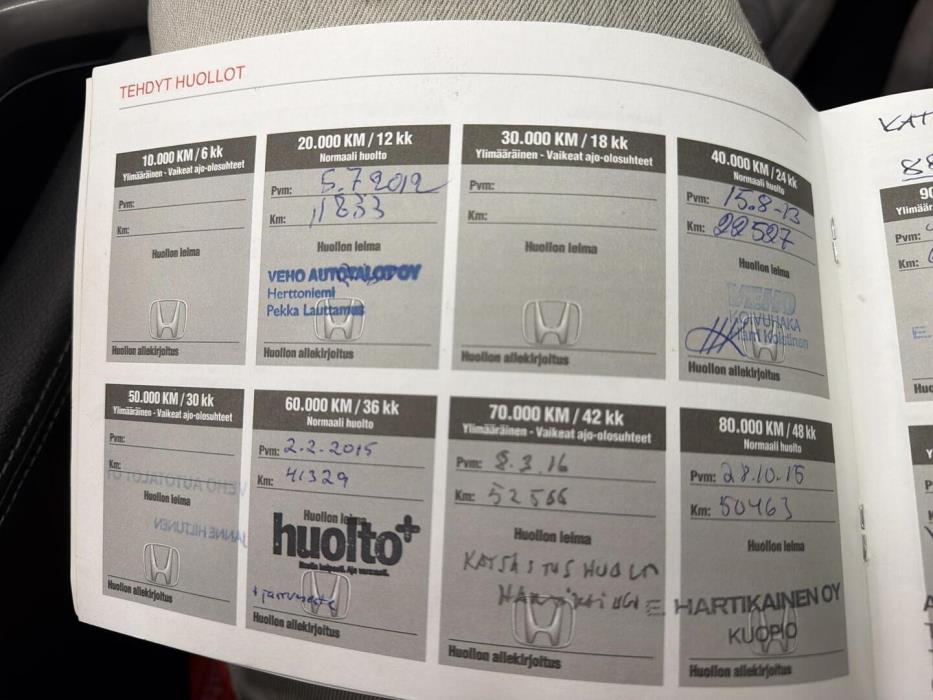 TEHDYT HUOLLOT
10.000 KM / 6 kk
Ylimääräinen - Vaikeat ajo-olosuhteet
Pvm:
Km:
Huollon leima
Huollon allekirjoitus
20.000 KM / 12 kk
Normaali huolto
Pvm: 5.7 2012
Km: 11833
Huollon leima
VEHO AUTOTALOT OY
Herttoniemi
Pekka Lauttamus
Huollon allekirjoitus
30.000 KM / 18 kk
Ylimääräinen - Vaikeat ajo-olosuhteet
Pvm:
Km:
Huollon leima
Huollon allekirjoitus
40.000 KM / 24 kk
Normaali huolto
Pvm: 15.8-13
Km: 22527
Huollon leima
VEHO
KOIVUHAKA
Huollon allekirjoitus
50.000 KM / 30 kk
Ylimääräinen - Vaikeat ajo-olosuhteet
Pvm:
Km:
VEHO AUTOTALOT OY
Huollon leima
JANNE HILTUNEN
Huollon allekirjoitus
60.000 KM / 36 kk
Normaali huolto
Pvm: 2.2.2015
Km: 41329
Huollon leima
huolto+
Huollon allekirjoitus
70.000 KM / 42 kk
Ylimääräinen - Vaikeat ajo-olosuhteet
Pvm: 8.3.16
Km: 52566
Huollon leima
KATSASTUS HUOLTO
Huollon allekirjoitus
80.000 KM / 48 kk
Normaali huolto
Pvm: 28.10.15
Km: 50463
Huollon leima
E. HARTIKAINEN OY
KUOPIO
Huollon allekirjoitus